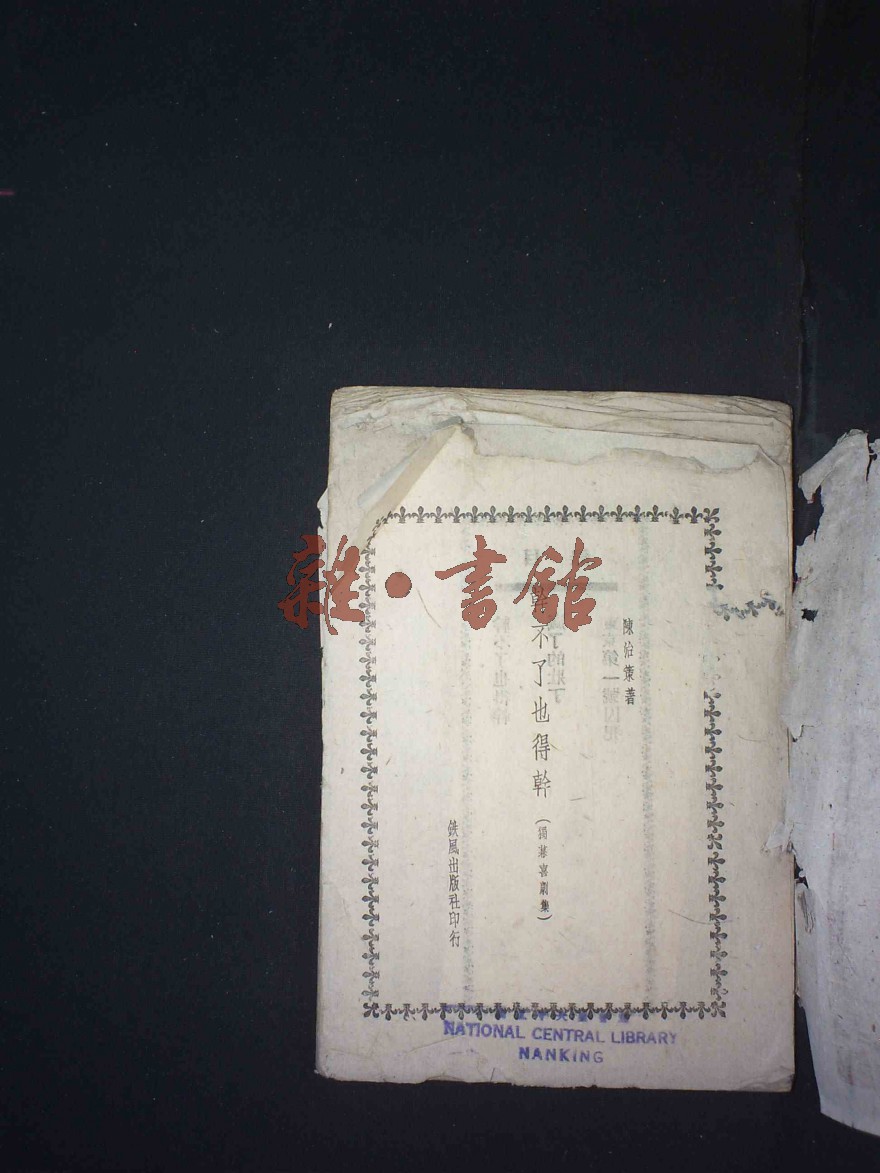 雜·書館
陳治策著
不了也得幹
(獨幕喜劇集)
鉄風出版社印行
NATIONAL CENTRAL LIBRARY
NANKING